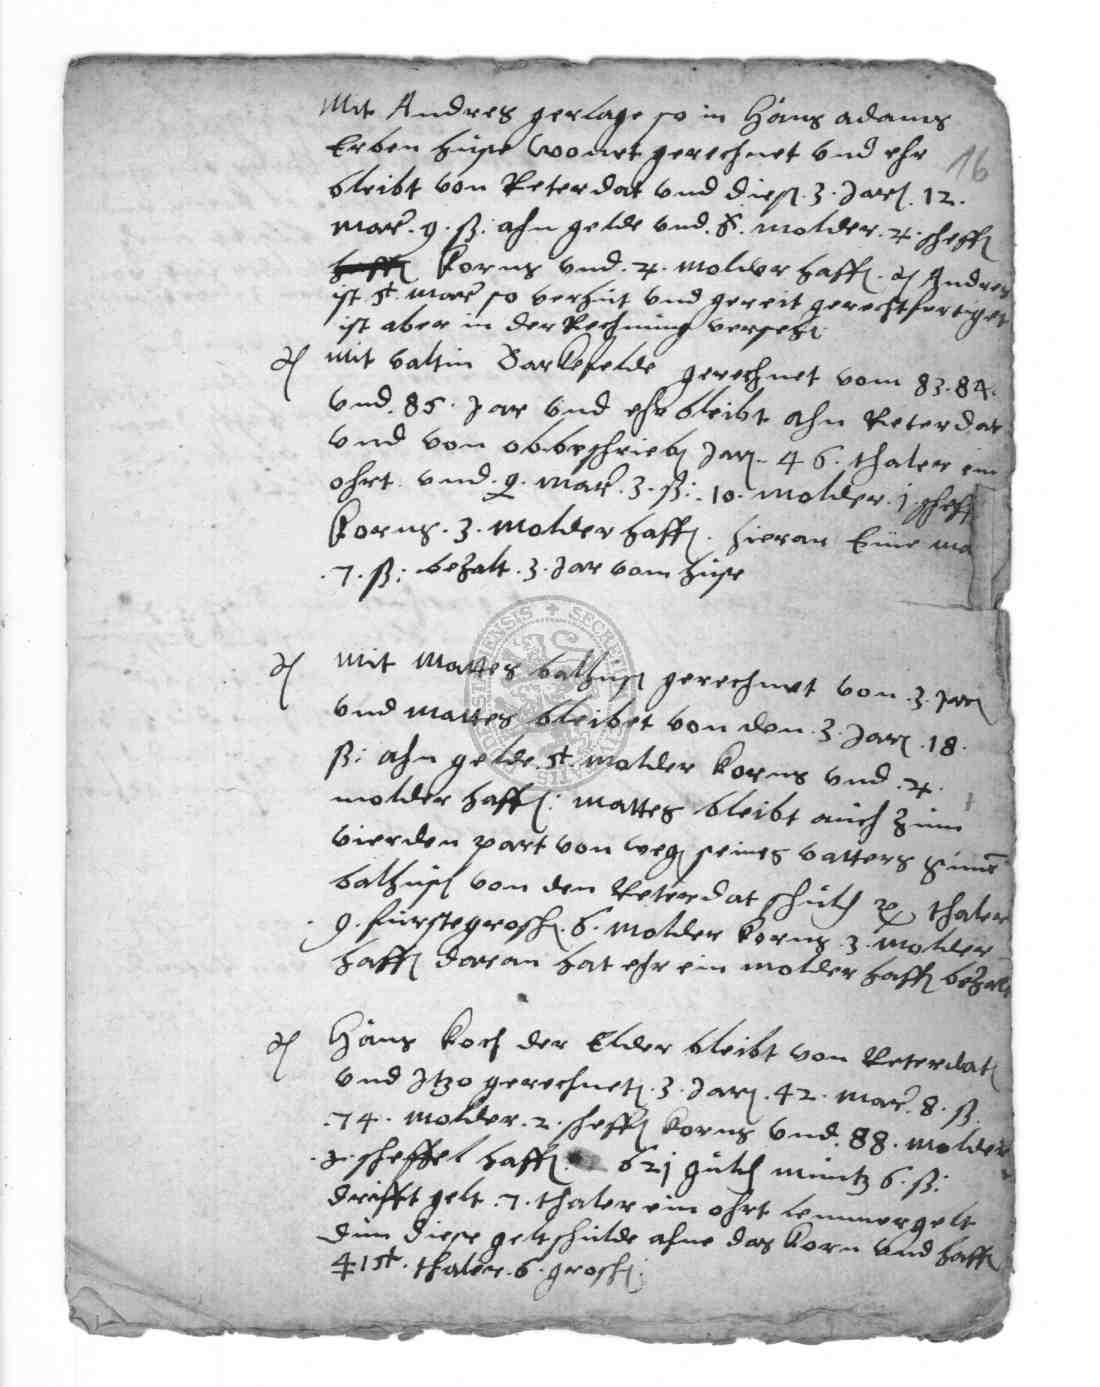 Mit Andres gerlage so in Hans adams
Erben huse wonet gerechnet vnd ehr
16
bleibt von Reterdat vnd dieß 3. Jarē. 12.
mar. 9. ß: ahn gelde vnd. 8. molder. 2. scheffē
haffē Korns vnd. 2. molder haffē. Andres
ist mar so verhut vnd gereit gerechtfertiget
ist aber in der Rechnung versehē
Mit valtin Barkefelde gerechnet vom 83. 84.
vnd. 85. Jar vnd ehr bleibt ahn Reterdat
vnd von obbeschriebē Jarē. 46. thaler ein
ohrt. vnd. 9. mar. 3. ß: 10. molder. j. scheff
Korns. 3. molder haffē. hieran Eine ma
.7. ß: bezalt. 3. Jar vom huse
Mit Mattes balhusē gerechnet von .3. Jarē
vnd mattes bleibet von den .3. Jarē. 18.
ß: ahn gelde. molder Korns vnd. 2.
molder haffē: mattes bleibt auch zum
vierden part von wegē seines vatters
balhusē von den Reterdat schult thaler
.9. furstegroschē. 6. molder Korns. 3. molder
haffē daran hat ehr ein molder haffē bezalt
Hans Koch der Elder bleibt von Reterdatē
vnd Itzo gerechnetē. 3. Jarē. 42. mar. 8. ß.
.74. molder. 2. scheffē Korns vnd. 88. molder
scheffel haffē. 62j guld muntz 6. ß:
drifft gelt .7. thaler ein ohrt lemmergelt
Dun diese geltschulde ahne das Korn vnd haffē
thaler. 6. groschē.
SECRET